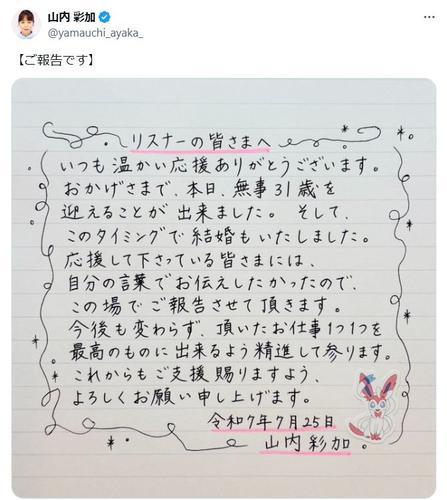 山内 彩加
@yamauchi_ayaka_
【ご報告です】
リスナーの皆さまへ
いつも温かい応援ありがとうございます。
おかげさまで、本日、無事31歳を
迎えることが出来ました。そして、
このタイミングで結婚もいたしました。
応援して下さっている皆さまには、
自分の言葉でお伝えしたかったので、
この場でご報告させて頂きます。
今後も変わらず、頂いたお仕事1つ1つを
最高のものに出来るよう精進して参ります。
これからもご支援賜りますよう、
よろしくお願い申し上げます。
令和7年7月25日
山内 彩加